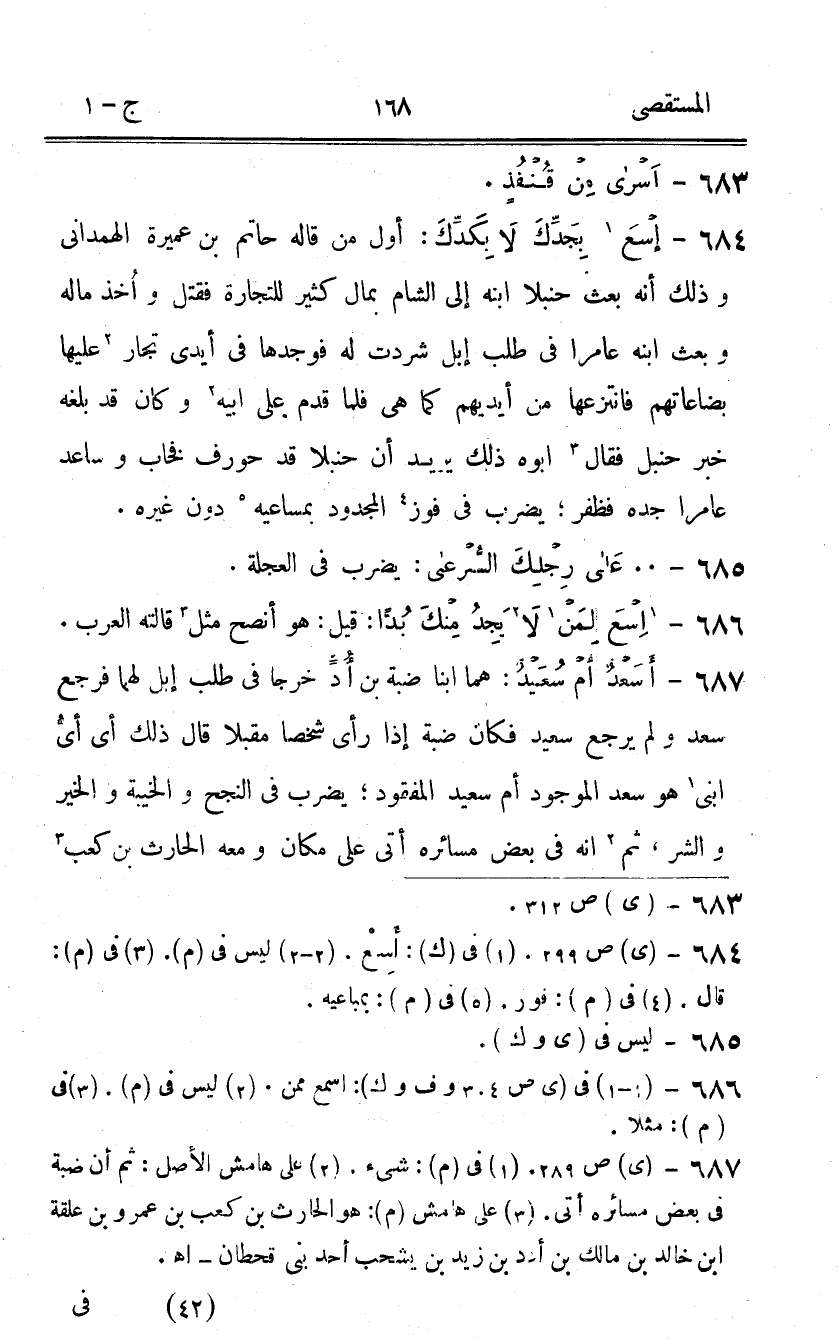 المستقصى ١٦٨ ج - ١
٦٨٣ - أَسْرٰى مِنْ قُنْفُذٍ .
٦٨٤ - إِسْعَ ١ بِجَدِّكَ لَا بِكَدِّكَ : أول من قاله حاتم بن عميرة الهمدانى
و ذلك أنه بعث حنبلا ابنه إلى الشام بمال كثير للتجارة فقتل و أُخذ ماله
و بعث ابنه عامرا فى طلب إبل شردت له فوجدها فى أيدى تجار ٢ عليها
بضاعاتهم فانتزعها من أيديهم كما هى فلما قدم على ابيه ٢ و كان قد بلغه
خبر حنبل فقال ٣ ابوه ذلك يريد أن حنبلا قد حورف فخاب و ساعد
عامرا جده فظفر ؛ يضرب فى فوز ٤ المجدود بمساعيه ٥ دون غيره .
٦٨٥ - ٠٠ عَلٰى رِجْلِكَ السُّرْعٰى : يضرب فى العجلة .
٦٨٦ - ١ اِسْعَ لِمَنْ ١ لَا ٢ يَجِدُ مِنْكَ بُدًّا : قيل : هو أنصح مثل ٣ قالته العرب .
٦٨٧ - أَسَعْدٌ أَمْ سُعَيْدٌ : هما ابنا ضبة بن أُدٍّ خرجا فى طلب إبل لهما فرجع
سعد و لم يرجع سعيد فكان ضبة إذا رأى شخصا مقبلا قال ذلك أى أىُّ
ابنى ١ هو سعد الموجود أم سعيد المفقود ؛ يضرب فى النجح و الخيبة و الخير
و الشر ، ثم ٢ انه فى بعض مسائره أتى على مكان و معه الحارث بن كعب ٣
٦٨٣ - ( ى ) ص ٣١٢ .
٦٨٤ - (ى) ص ٢٩٩ . (١) فى (ك) : أَسِعْ . (٢-٢) ليس فى (م). (٣) فى (م) :
قال . (٤) فى ( م ) : فور . (٥) فى ( م ) : بمباعيه .
٦٨٥ - ليس فى ( ى و ك ) .
٦٨٦ - (١-١) فى (ى ص ٣٠٤ و ف و ك): اسمع ممن . (٢) ليس فى (م) . (٣) فى
( م ) : مثلا .
٦٨٧ - (ى) ص ٢٨٩. (١) فى (م) : شىء . (٢) على هامش الأصل : ثم أن ضبة
فى بعض مسائره أتى. (٣) على هامش (م): هو الحارث بن كعب بن عمرو بن علقة
ابن خالد بن مالك بن أدد بن زيد بن يشحب أحد بنى قحطان - اه .
(٤٢) فى